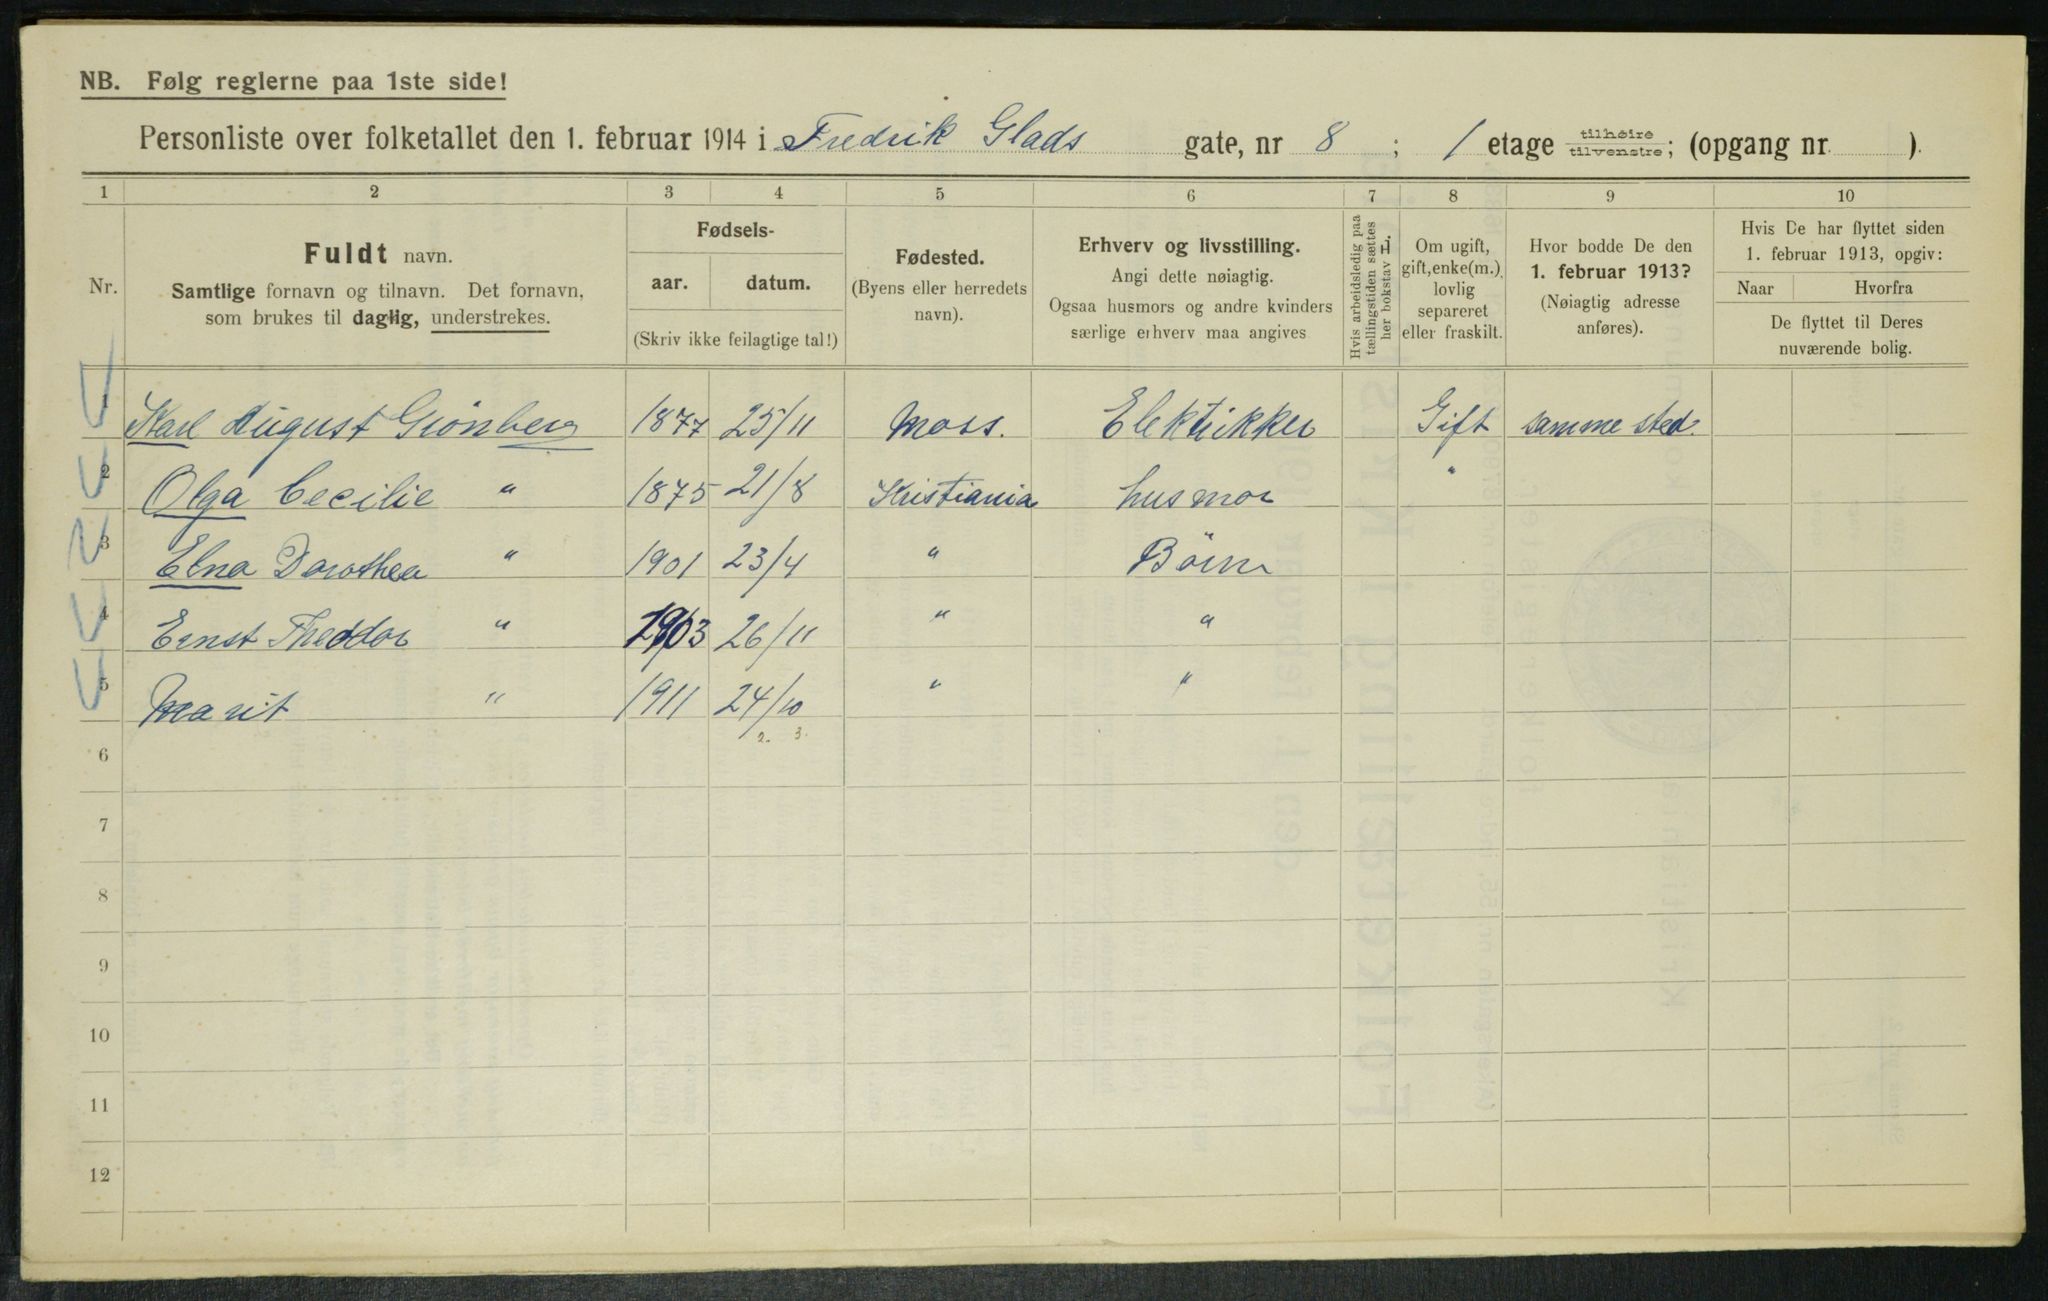 NB. Følg reglerne paa 1ste side!
Personliste over folketallet den 1. februar 1914 i Fredrik Glads gate, nr 8 ; 1 etage tilhøire tilvenstre; (opgang nr ).
1 2 3 4 5 6 7 8 9 10
Nr.
Fuldt navn.
Samtlige fornavn og tilnavn. Det fornavn,
som brukes til daglig, understrekes.
Fødsels-
aar. datum.
(Skriv ikke feilagtige tal!)
Fødested.
(Byens eller herredets
navn).
Erhverv og livsstilling.
Angi dette nøiagtig.
Ogsaa husmors og andre kvinders
særlige erhverv maa angives
Hvis arbeidsledig paa
tællingstiden sættes
her bokstav L.
Om ugift,
gift, enke(m.),
lovlig
separeret
eller fraskilt.
Hvor bodde De den
1. februar 1913?
(Nøiagtig adresse
anføres).
Hvis De har flyttet siden
1. februar 1913, opgiv:
Naar Hvorfra
De flyttet til Deres
nuværende bolig.
1 Karl August Grönberg 1877 25/11 Moss. Elektrikker Gift samme sted.
2 Olga Cecilie " 1875 21/8 Kristiania husmor "
3 Elna Dorothea " 1901 23/4 " Börn
4 Ernst Theodor " 1903 26/11 " "
5 Marit " 1911 24/10 " "
2. 3.
6
7
8
9
10
11
12